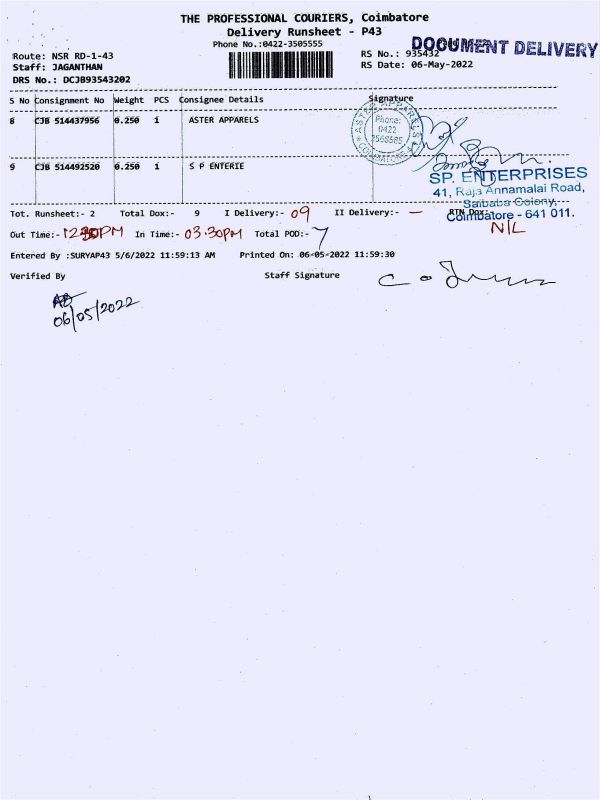 THE PROFESSIONAL COURIERS, Coimbatore
Delivery Runsheet - P43
Phone No.:0422-3505555
DOCUMENT DELIVERY
Route: NSR RD-1-43
RS No.: 935432
Staff: JAGANTHAN
RS Date: 06-May-2022
DRS No.: DCJB93543202
S No Consignment No Weight PCS Consignee Details Signature
8 CJB 514437956 0.250 1 ASTER APPARELS
ASTER APPARELS
Phone:
0422
2568585
COIMBATORE
9 CJB 514492520 0.250 1 S P ENTERIE
SP. ENTERPRISES
41, Raja Annamalai Road,
Saibaba Colony,
Coimbatore - 641 011.
Tot. Runsheet:- 2 Total Dox:- 9 I Delivery:- 09 II Delivery:- — RTN Dox:-
NIL
Out Time:- 12.30PM In Time:- 03.30PM Total POD:- 7
Entered By :SURYAP43 5/6/2022 11:59:13 AM Printed On: 06-05-2022 11:59:30
Verified By Staff Signature
06/05/2022